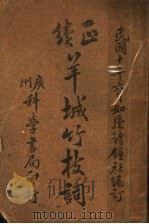 民國十
正
續
羊城竹枝詞
廣
州
科學書局印行